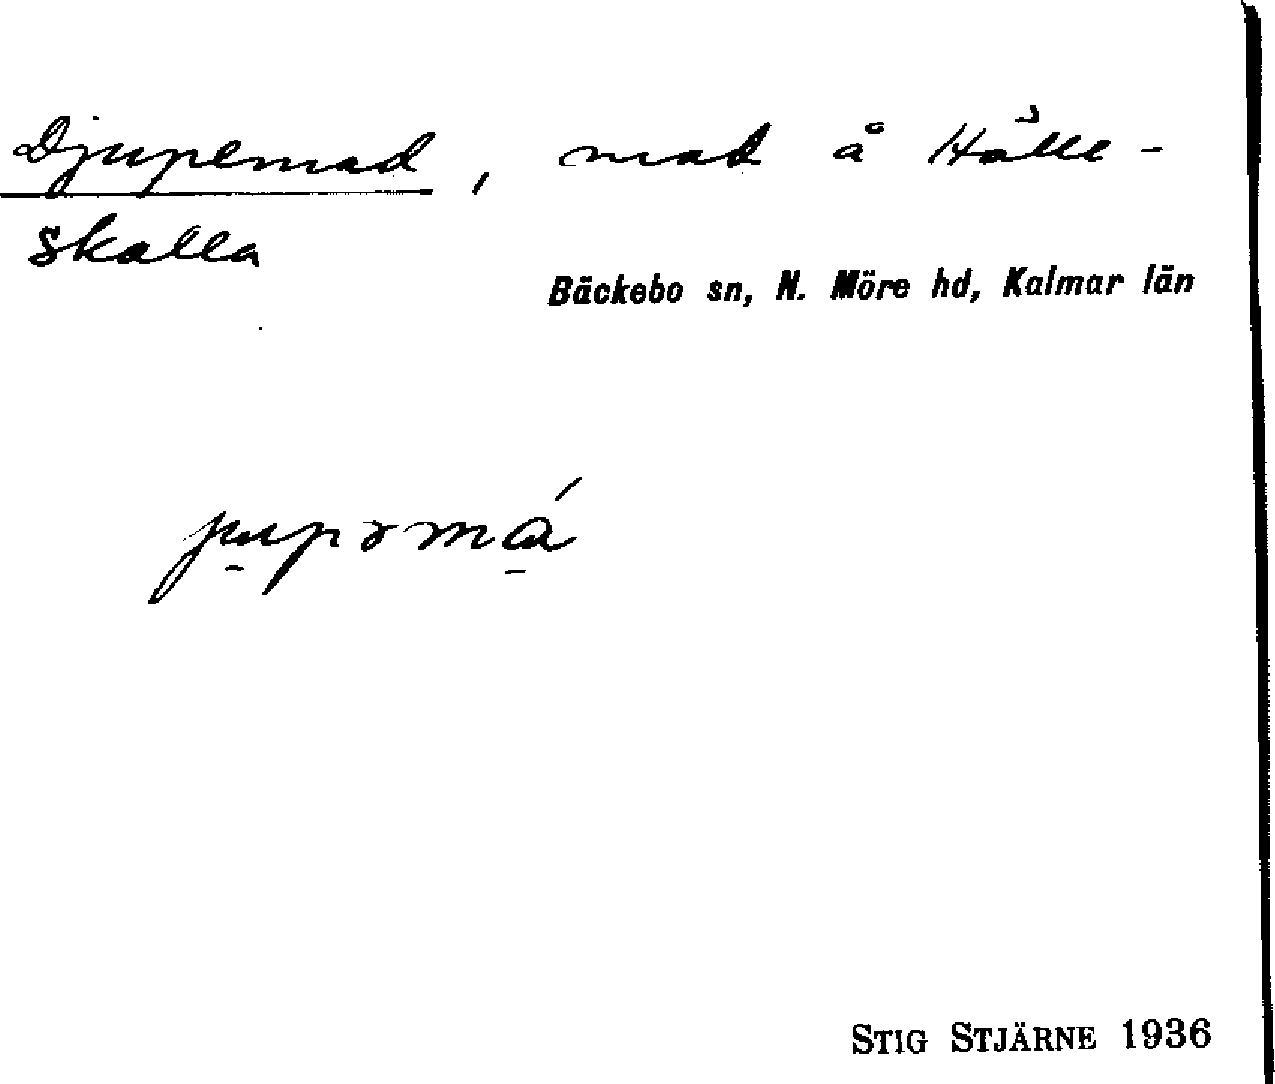 Djupemad, mad å Hälle-
skalla
Bäckebo sn, N. Möre hd, Kalmar län
jupəmá
STIG STJÄRNE 1936